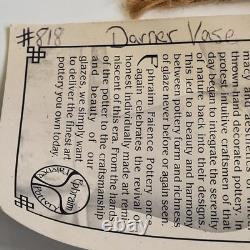 #818 Darner Vase
thrown hand decorated
protest into
began to integrate the serenity
of nature back into their designs.
This led to a beauty and harmony
between pottery form and richness
of glaze never before or again seen.
Ephraim Faience Pottery once
again celebrates the revival of
honest individually made art remi-
niscent of this era. From the hands
of the potter to the craftsmanship
and beauty of our
glazes, we simply want
to deliver the finest art
pottery you own today.
Ephraim
Pottery